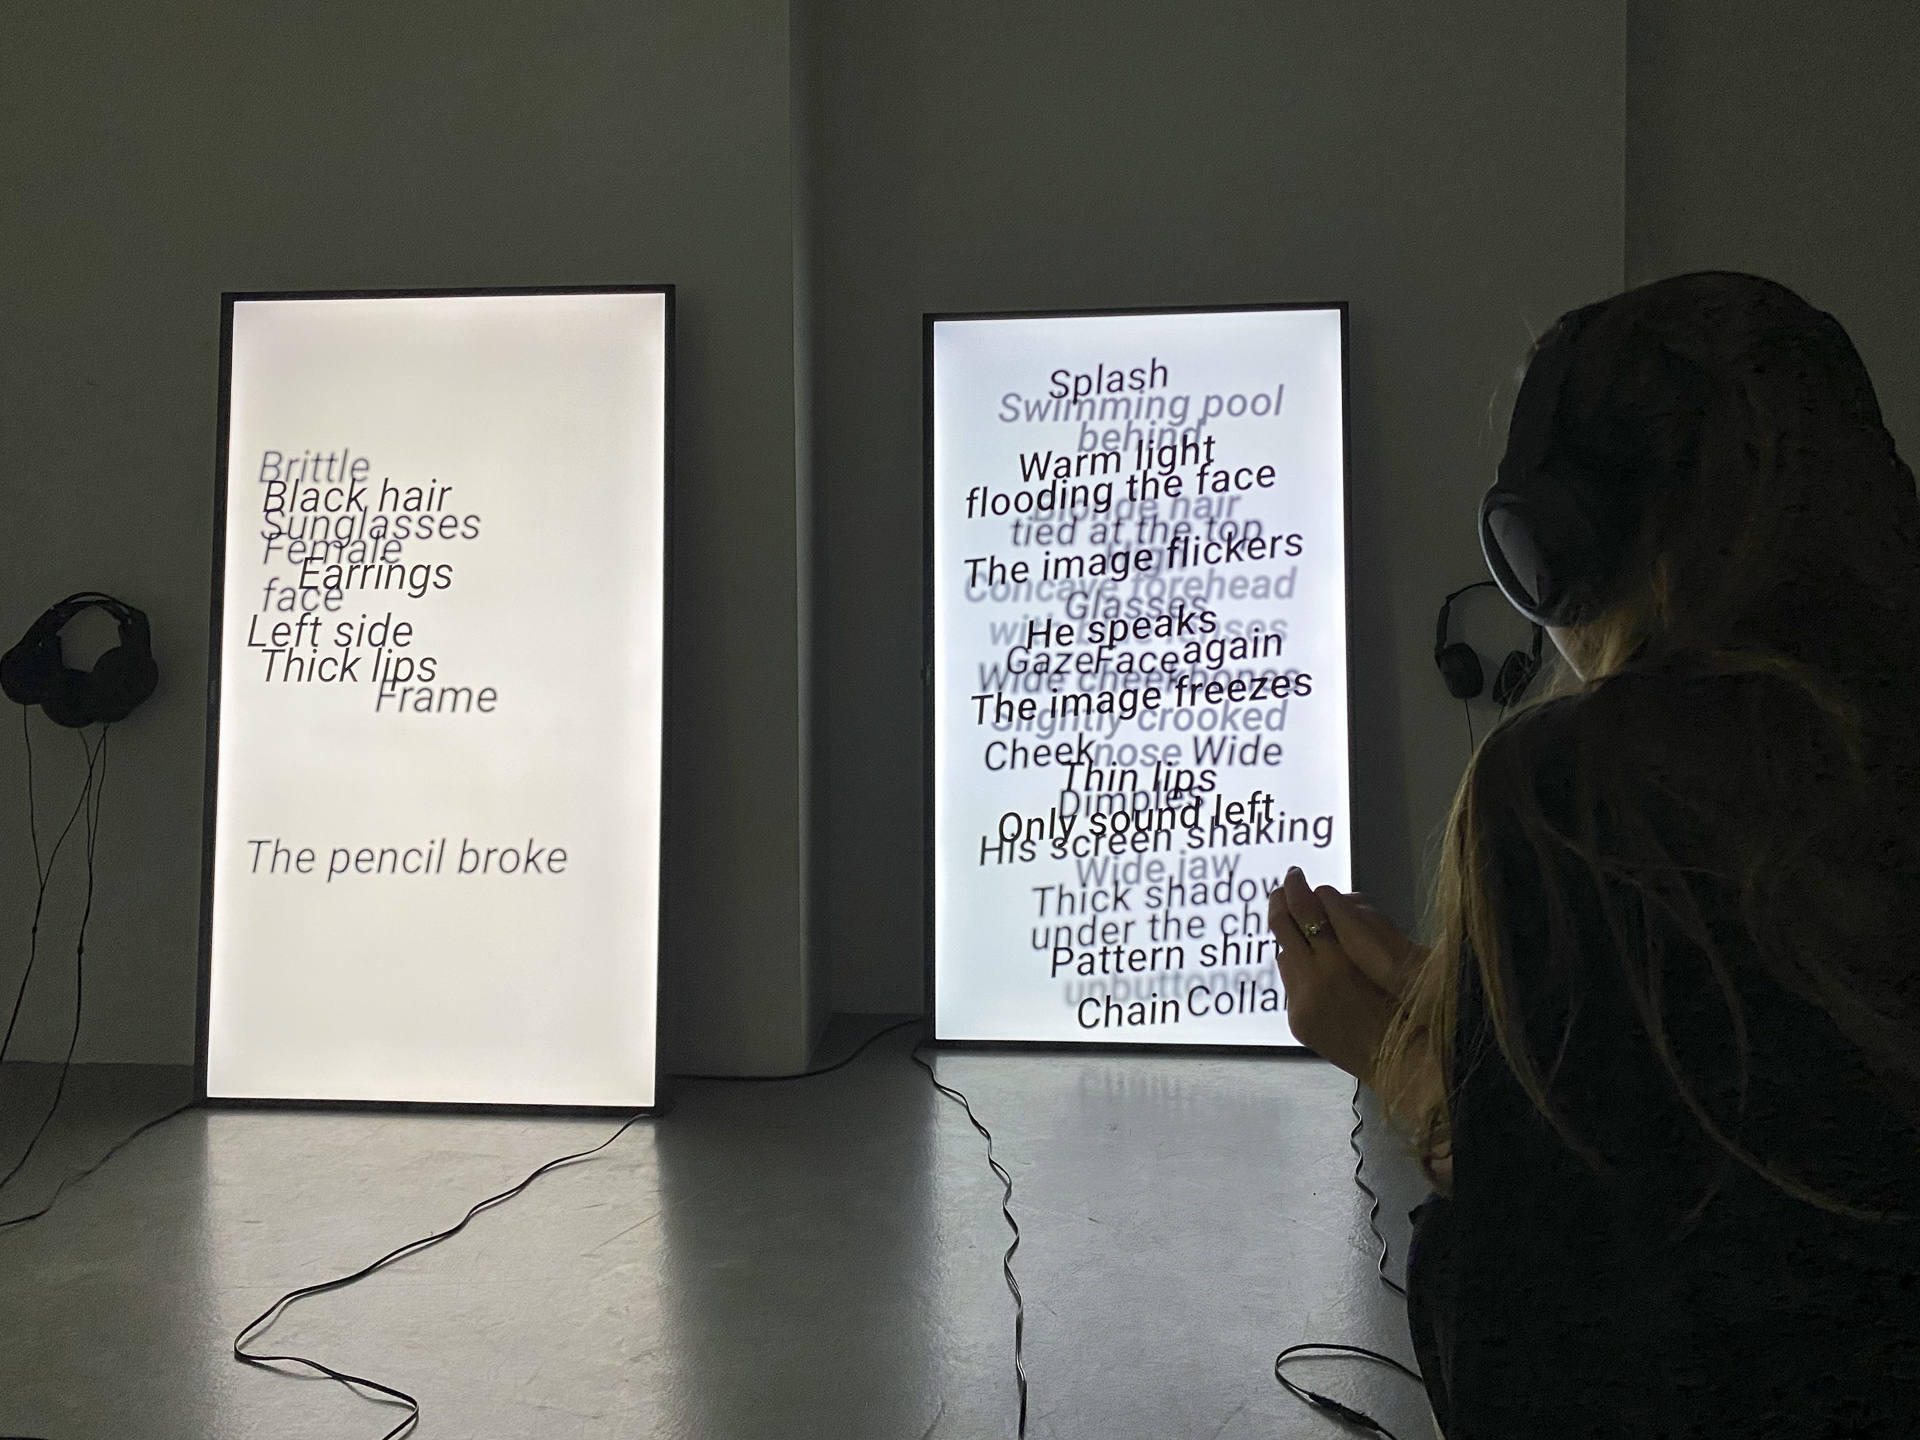 Brittle
Black hair
Sunglasses
Female
Earrings
face
Left side
Thick lips
Frame
The pencil broke
Splash
Swimming pool
behind
Warm light
flooding the face
Blonde hair
tied at the top
The image flickers
Concave forehead
Glasses
He speaks
Gaze Face again
Wide cheekbones
The image freezes
Slightly crooked
Cheek nose Wide
Thin lips
Dimples
Only sound left
His screen shaking
Wide jaw
Thick shadow
under the
Pattern shirt
unbuttoned
Chain